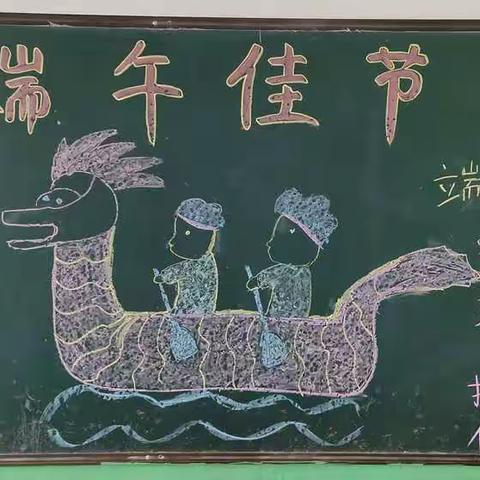 端午佳节
端